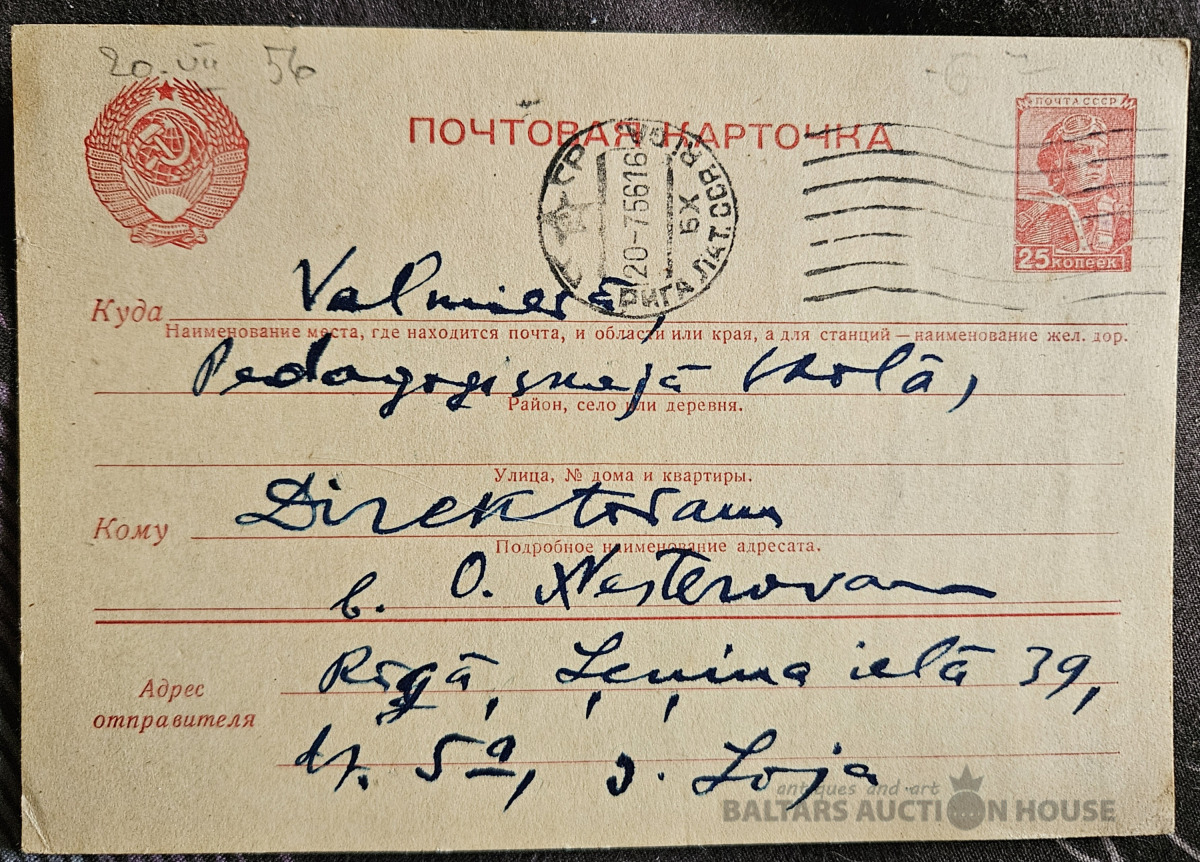 20. VII 56
ПОЧТОВАЯ КАРТОЧКА
ПОЧТА СССР
25 копеек
РИГА ЛАТ. ССР RIGA
20-7 56 16
БХ
Куда Valmierā,
Наименование места, где находится почта, и области или края, а для станций — наименование жел. дор.
Pedagogiskajā skolā,
Район, село или деревня.
Улица, № дома и квартиры.
Кому Direktoram
Подробное наименование адресата.
b. O. Nesterovam
Адрес отправителя
Rīgā, Ļeņina ielā 39,
dz. 5a, J. Loja
antiques and art
BALTARS AUCTION HOUSE